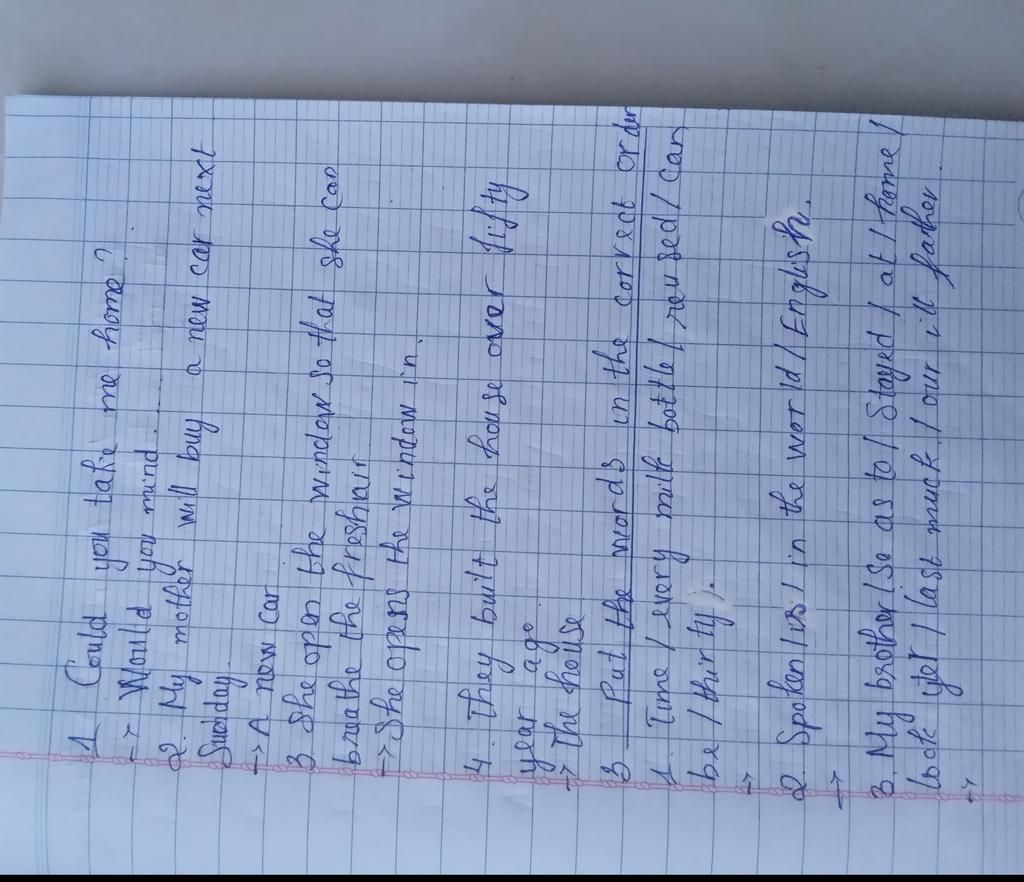 1 Could you take me home?
-> Would you mind..........
2. My mother will buy a new car next
Sunday.
-> A new car
3. She open the window so that she can
breathe the freshair
-> She opens the window in.
4. They built the house over fifty
year ago
-> The house
3 Put the words in the correct order
1. Time / every milk bottle / reused / can
be / thirty /.
->
2. Spoken / is / in the world / English.
->
3. My brother / so as to / Stayed / at / home /
look after / last much / our ill father.
->